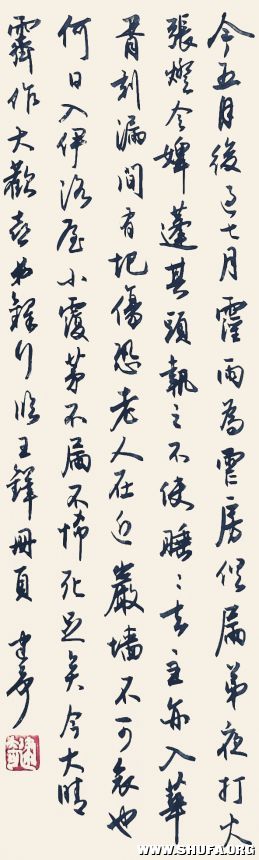 今五月後至七月霪雨為雪房俱漏弟夜打火
張燈令婢蓬其頭執之不使睡睡去主亦入華
胥刻漏間有圮傷恐老人在近巖墻不可家也
何日入伊洛屋小覆茅不漏不怖死足矣今大晴
霽作大歡喜弟鐸 臨王鐸冊頁
WWW.SHUFA.ORG